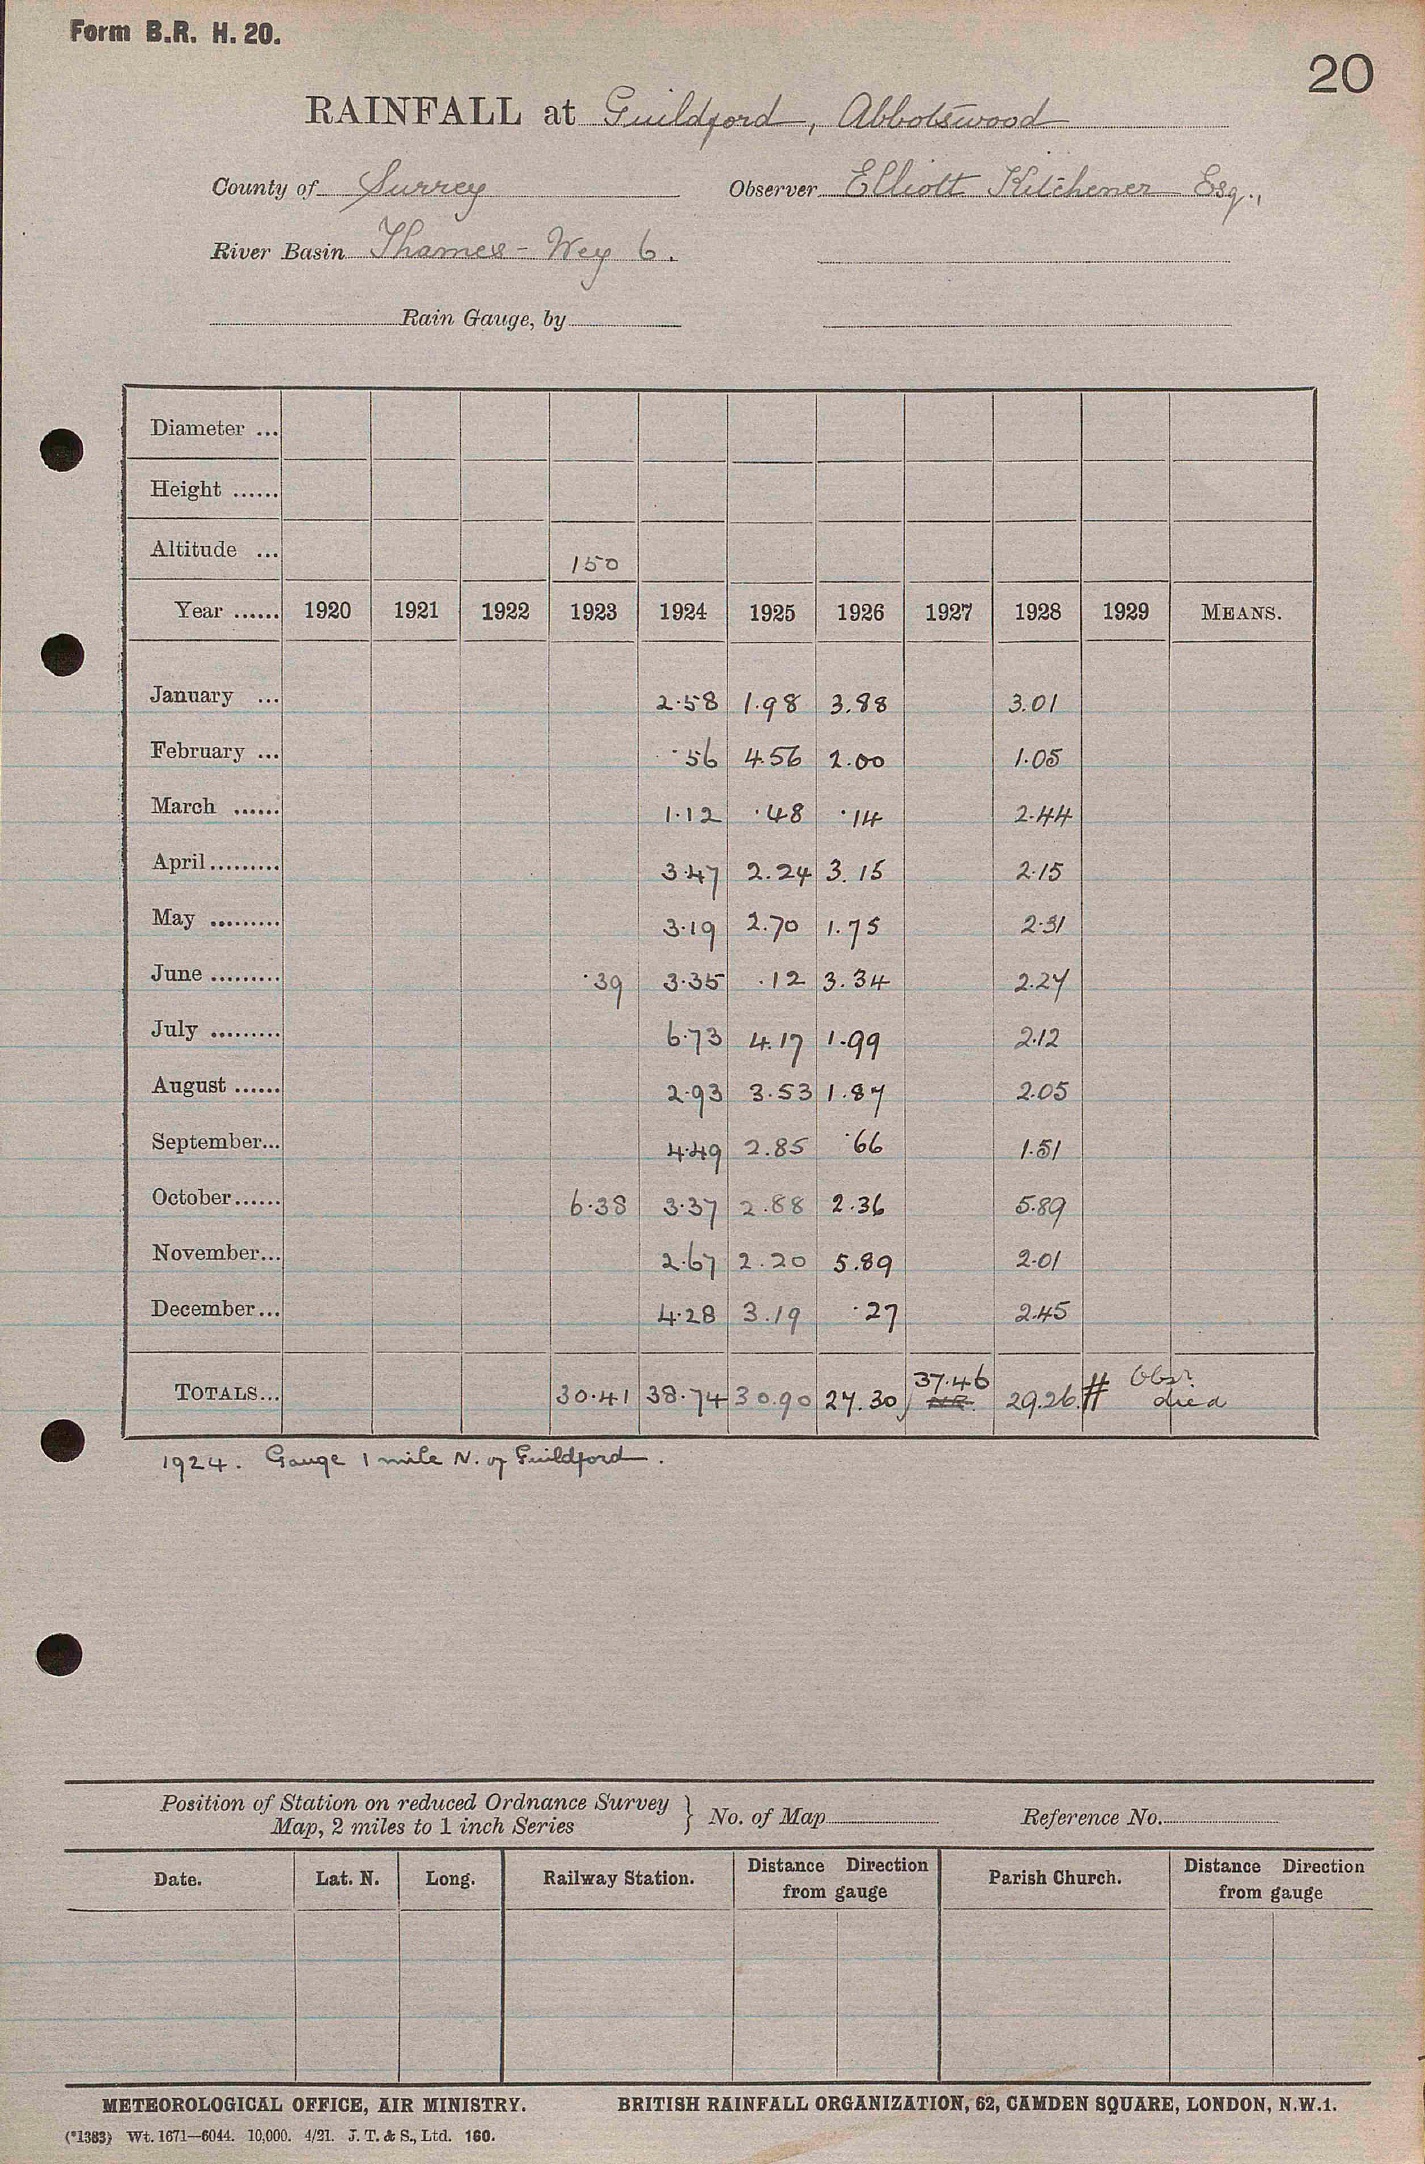 Form B.R. H. 20.
20
RAINFALL at Guildford, Abbotswood
County of Surrey Observer Elliott Kitchener Esq.,
River Basin Thames - Wey 6.
Rain Gauge, by
Diameter ...
Height ......
Altitude ... 150
Year ...... 1920 1921 1922 1923 1924 1925 1926 1927 1928 1929 MEANS.
January ... 2.58 1.98 3.88 3.01
February ... .56 4.56 2.00 1.05
March ...... 1.12 .48 .14 2.44
April ......... 3.47 2.24 3.15 2.15
May ......... 3.19 2.70 1.75 2.31
June ......... .39 3.35 .12 3.34 2.27
July ......... 6.73 4.17 1.99 2.12
August ...... 2.93 3.53 1.87 2.05
September... 4.49 2.85 .66 1.51
October ...... 6.38 3.37 2.88 2.36 5.89
November... 2.67 2.20 5.89 2.01
December... 4.28 3.19 .27 2.45
TOTALS... 30.41 38.74 30.90 27.30 37.46 N.R. 29.26 # Obsr died
1924. Gauge 1 mile N. of Guildford.
Position of Station on reduced Ordnance Survey
Map, 2 miles to 1 inch Series } No. of Map Reference No.
Date. Lat. N. Long. Railway Station. Distance Direction from gauge Parish Church. Distance Direction from gauge
METEOROLOGICAL OFFICE, AIR MINISTRY. BRITISH RAINFALL ORGANIZATION, 62, CAMDEN SQUARE, LONDON, N.W.1.
(*1383) Wt. 1671—6044. 10,000. 4/21. J. T. & S., Ltd. 160.